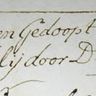 en Gedoopt
lij door D